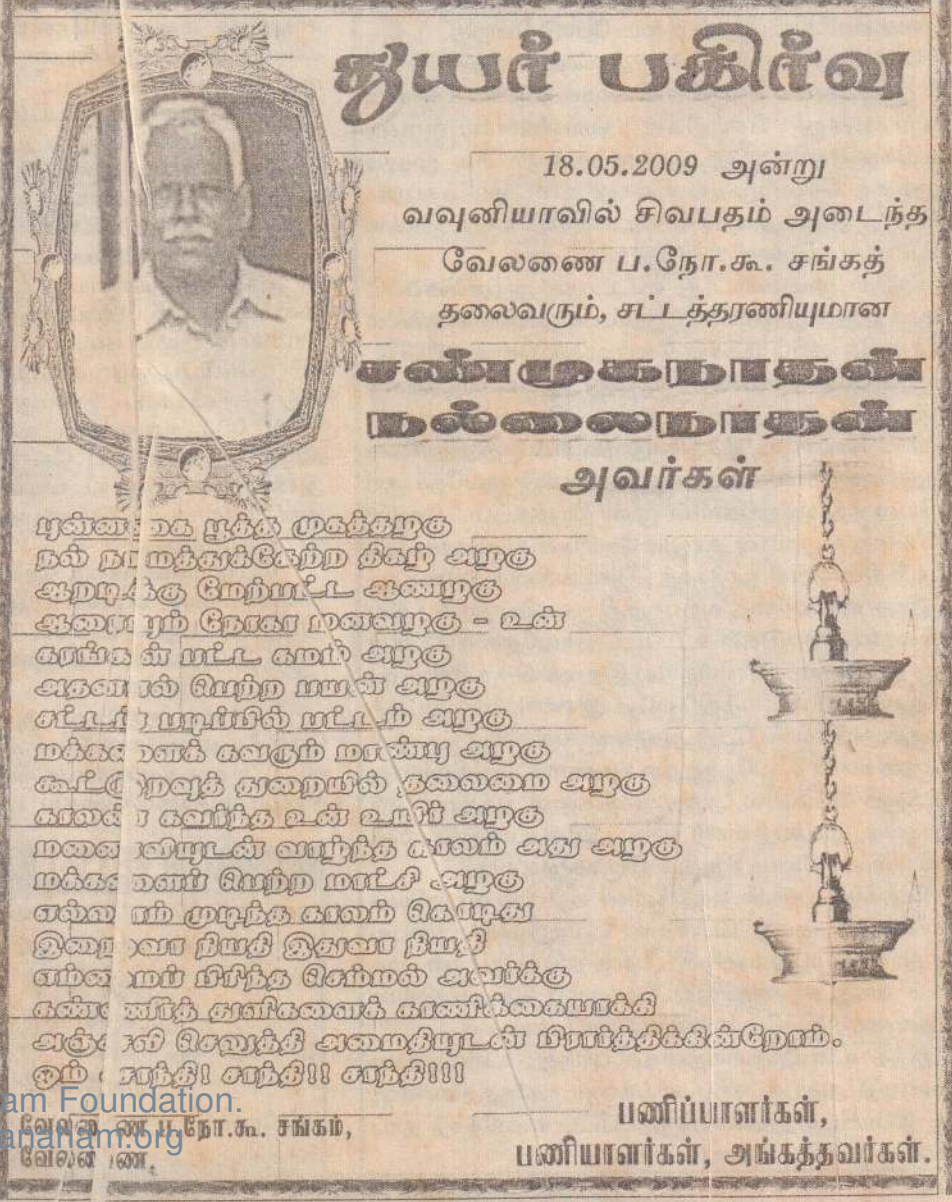 துயர் பகிர்வு
18.05.2009 அன்று
வவுனியாவில் சிவபதம் அடைந்த
வேலணை ப.நோ.கூ. சங்கத்
தலைவரும், சட்டத்தரணியுமான
சண்முகநாதன்
நல்லைநாதன்
அவர்கள்
புன்னகை பூத்த முகத்தழகு
நல் நாமத்துக்கேற்ற திகழ் அழகு
ஆறடிக்கு மேற்பட்ட ஆணழகு
ஆரையும் நோகா மனவழகு - உன்
கரங்கள் பட்ட கமம் அழகு
அதனால் பெற்ற பயன் அழகு
சட்டப் படிப்பில் பட்டம் அழகு
மக்களைக் கவரும் மாண்பு அழகு
கூட்டுறவுத் துறையில் தலைமை அழகு
காலன் கவர்ந்த உன் உயிர் அழகு
மனைவியுடன் வாழ்ந்த காலம் அது அழகு
மக்களைப் பெற்ற மாட்சி அழகு
எல்லாம் முடிந்த காலம் கொடிது
இறைவா நியதி இதுவா நியதி
எம்மைப் பிரிந்த செம்மல் அவர்க்கு
கண்ணீர்த் துளிகளைக் காணிக்கையாக்கி
அஞ்சலி செலுத்தி அமைதியுடன் பிரார்த்திக்கின்றோம்.
ஓம் சாந்தி! சாந்தி!! சாந்தி!!!
am Foundation.
anaham.org
வேலணை ப.நோ.கூ. சங்கம்,
வேலணை.
பணிப்பாளர்கள்,
பணியாளர்கள், அங்கத்தவர்கள்.